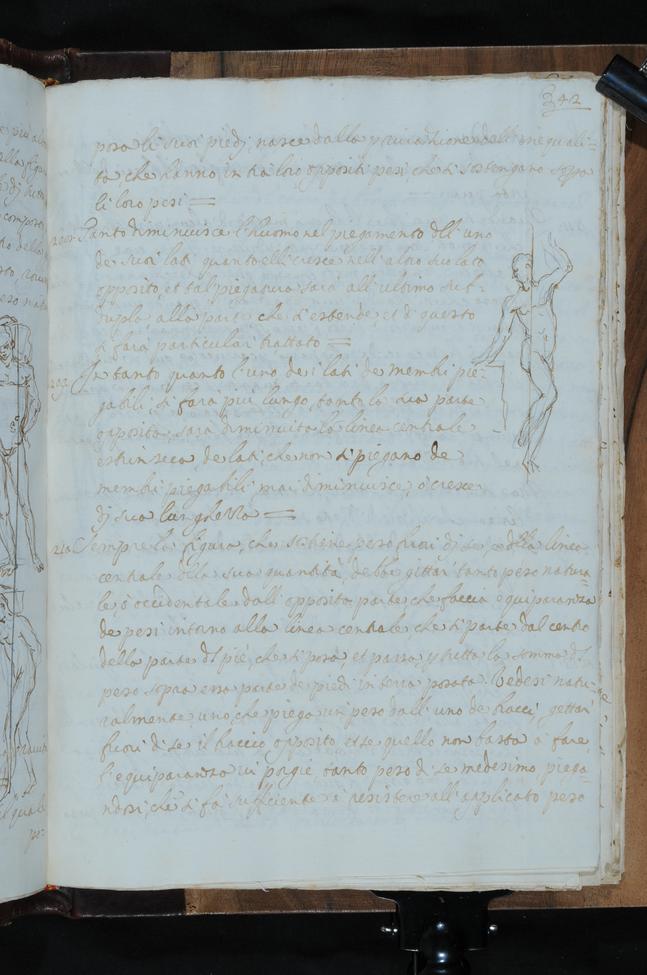 342
posa li suoi piedj, nasce dalla privazione dell' inequali=
tà, che hanno intra loro oppositi pesi che si sostengano sopra
li loro pesi =
208. Tanto diminuisce l'huomo nel piegamento dell' uno
de suoi lati quanto elli cresce nell' altro suo lato
opposito, et tal piegatura sarà all' ultimo sub=
duplo alla parte che s'estende, et di questo
si farà particular trattato =
209. In tanto quanto l'uno deri lati de membri pie=
gabili, si farà più lungo, tanto la sua parte
opposita, sarà diminuita la linea centrale
estrinseca de lati, che non si piegano de
membri piegabili mai diminuisce, o cresce
dj sua lunghezza =
210. Sempre la figura, che sostiene peso fuori dj se, e della linea
centrale della sua quantità, debbe gittar' tanto peso natura
le, o' occidentale dall' opposita parte che faccia equiparanza
de pesi intorno alla linea centrale che si parte dal centro
della parte del piè, che si posa, et passa per tutta la somma del
peso sopra essa parte de piedi in terra posata. Vedesi natu=
ralmente uno, che piega un peso dall' uno de bracci, gettar'
fuori di se il braccio opposito, et se quello non basta a' fare
l'equiparanza vi porgie tanto peso di se medesimo piega=
ndosi, che si fa sufficiente a' resistere all' applicato peso